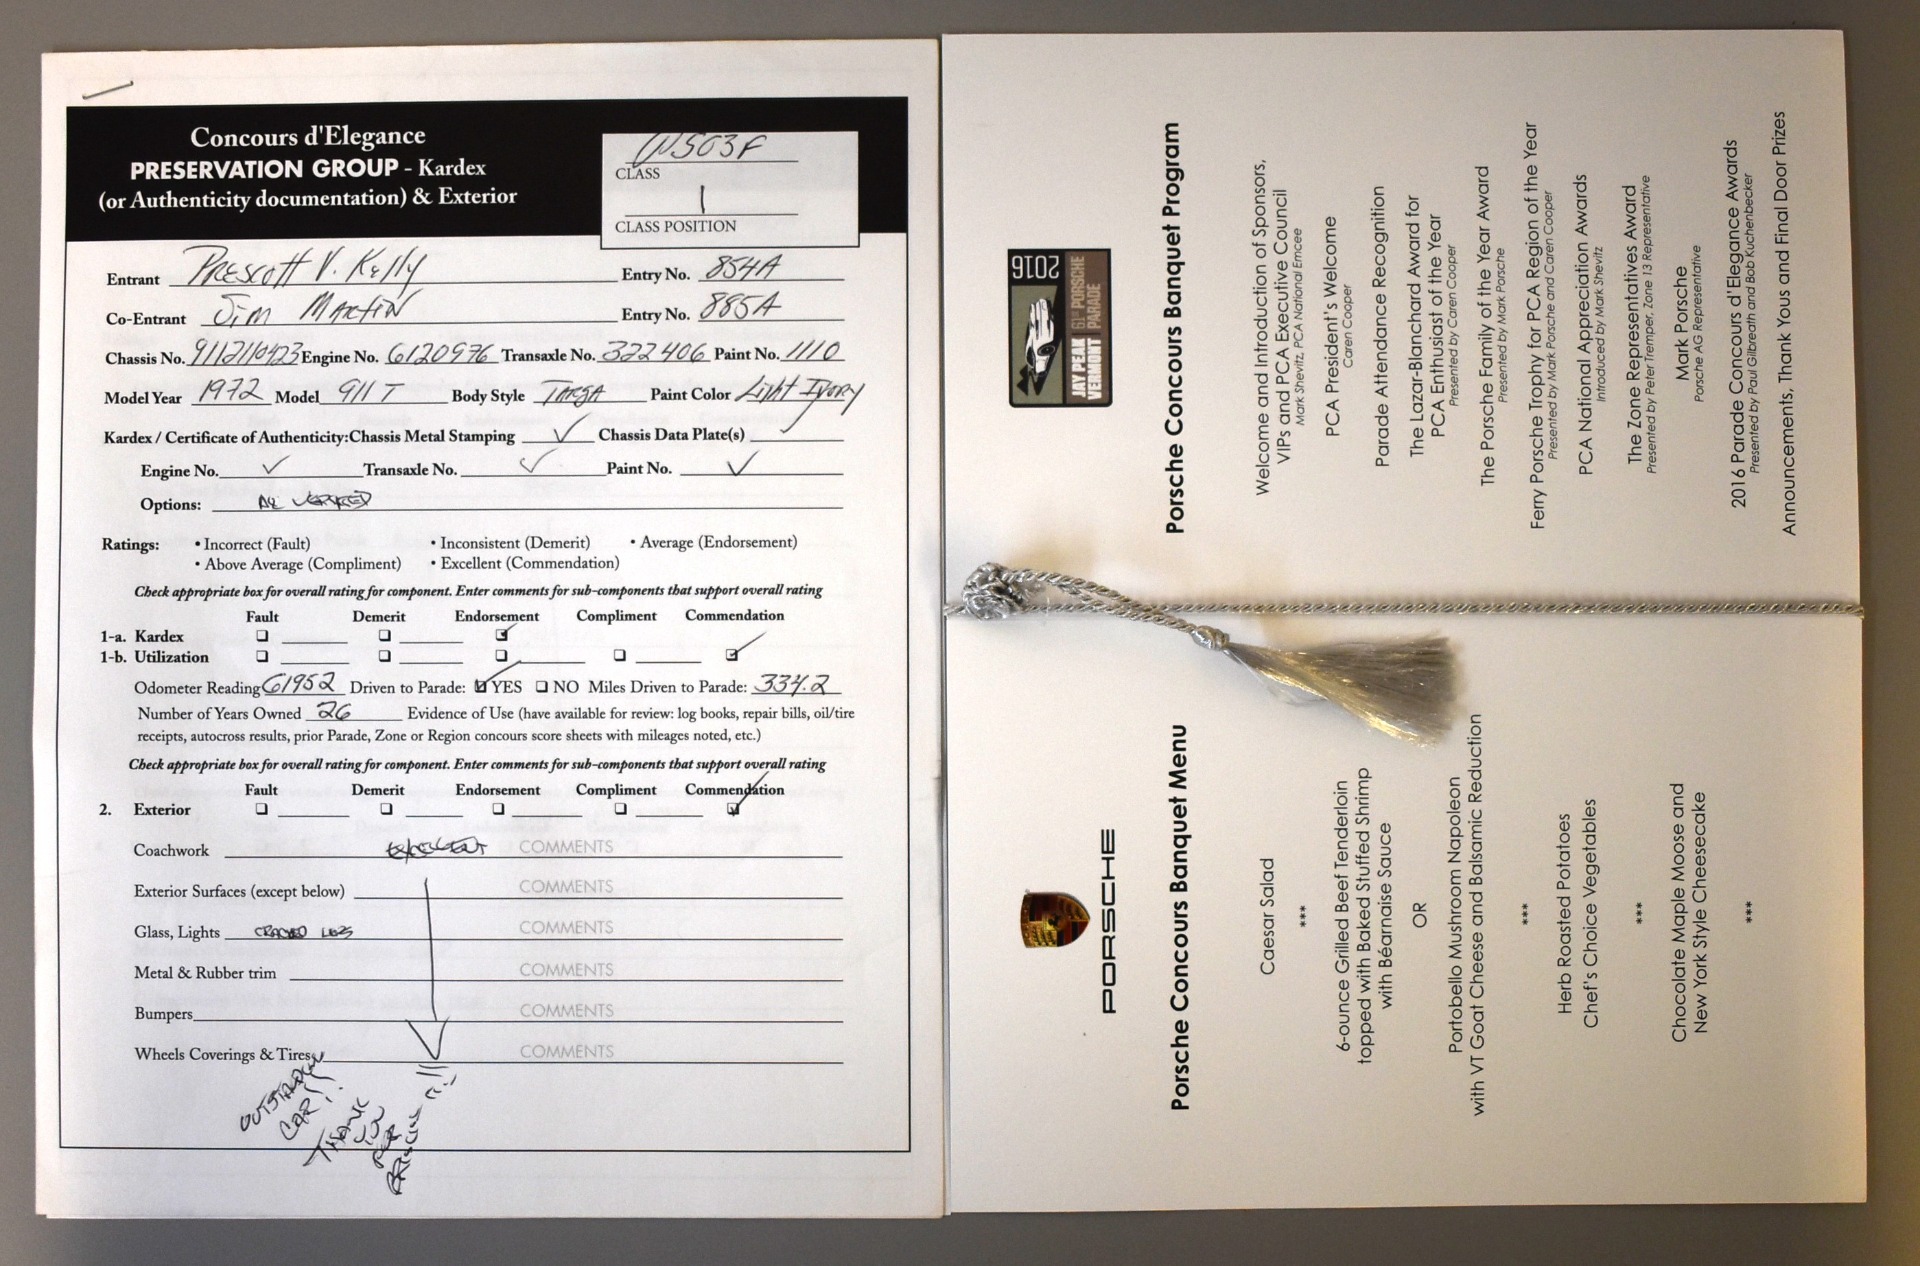 Concours d'Elegance
PRESERVATION GROUP - Kardex
(or Authenticity documentation) & Exterior
WS03F
CLASS
1
CLASS POSITION
Entrant Prescott V. Kelly Entry No. 854A
Co-Entrant Jim Martin Entry No. 885A
Chassis No. 9112110423 Engine No. 6120976 Transaxle No. 322406 Paint No. 1110
Model Year 1972 Model 911 T Body Style TARGA Paint Color Light Ivory
Kardex / Certificate of Authenticity: Chassis Metal Stamping ✓ Chassis Data Plate(s) ✓
Engine No. ✓ Transaxle No. ✓ Paint No. ✓
Options: ALL VERIFIED
Ratings: • Incorrect (Fault) • Inconsistent (Demerit) • Average (Endorsement)
• Above Average (Compliment) • Excellent (Commendation)
Check appropriate box for overall rating for component. Enter comments for sub-components that support overall rating
Fault Demerit Endorsement Compliment Commendation
1-a. Kardex
1-b. Utilization
Odometer Reading 61952 Driven to Parade: YES NO Miles Driven to Parade: 334.2
Number of Years Owned 26 Evidence of Use (have available for review: log books, repair bills, oil/tire
receipts, autocross results, prior Parade, Zone or Region concours score sheets with mileages noted, etc.)
Check appropriate box for overall rating for component. Enter comments for sub-components that support overall rating
Fault Demerit Endorsement Compliment Commendation
2. Exterior
Coachwork EXCELLENT COMMENTS
Exterior Surfaces (except below) COMMENTS
Glass, Lights CRACKED LENS COMMENTS
Metal & Rubber trim COMMENTS
Bumpers COMMENTS
Wheels Coverings & Tires COMMENTS
OUTSTANDING
CAR!!
THANK
YOU
FOR
2016
JAY PEAK
VERMONT
61ST PORSCHE
PARADE
Porsche Concours Banquet Program
Welcome and Introduction of Sponsors,
VIPs and PCA Executive Council
Mark Shevitz, PCA National Emcee
PCA President's Welcome
Caren Cooper
Parade Attendance Recognition
The Lazar-Blanchard Award for
PCA Enthusiast of the Year
Presented by Caren Cooper
The Porsche Family of the Year Award
Presented by Mark Porsche
Ferry Porsche Trophy for PCA Region of the Year
Presented by Mark Porsche and Caren Cooper
PCA National Appreciation Awards
Introduced by Mark Shevitz
The Zone Representatives Award
Presented by Peter Tremper, Zone 13 Representative
Mark Porsche
Porsche AG Representative
2016 Parade Concours d'Elegance Awards
Presented by Paul Gilbreath and Bob Kuchenbecker
Announcements, Thank Yous and Final Door Prizes
PORSCHE
Porsche Concours Banquet Menu
Caesar Salad
***
6-ounce Grilled Beef Tenderloin
topped with Baked Stuffed Shrimp
with Béarnaise Sauce
OR
Portobello Mushroom Napoleon
with VT Goat Cheese and Balsamic Reduction
***
Herb Roasted Potatoes
Chef's Choice Vegetables
***
Chocolate Maple Moose and
New York Style Cheesecake
***